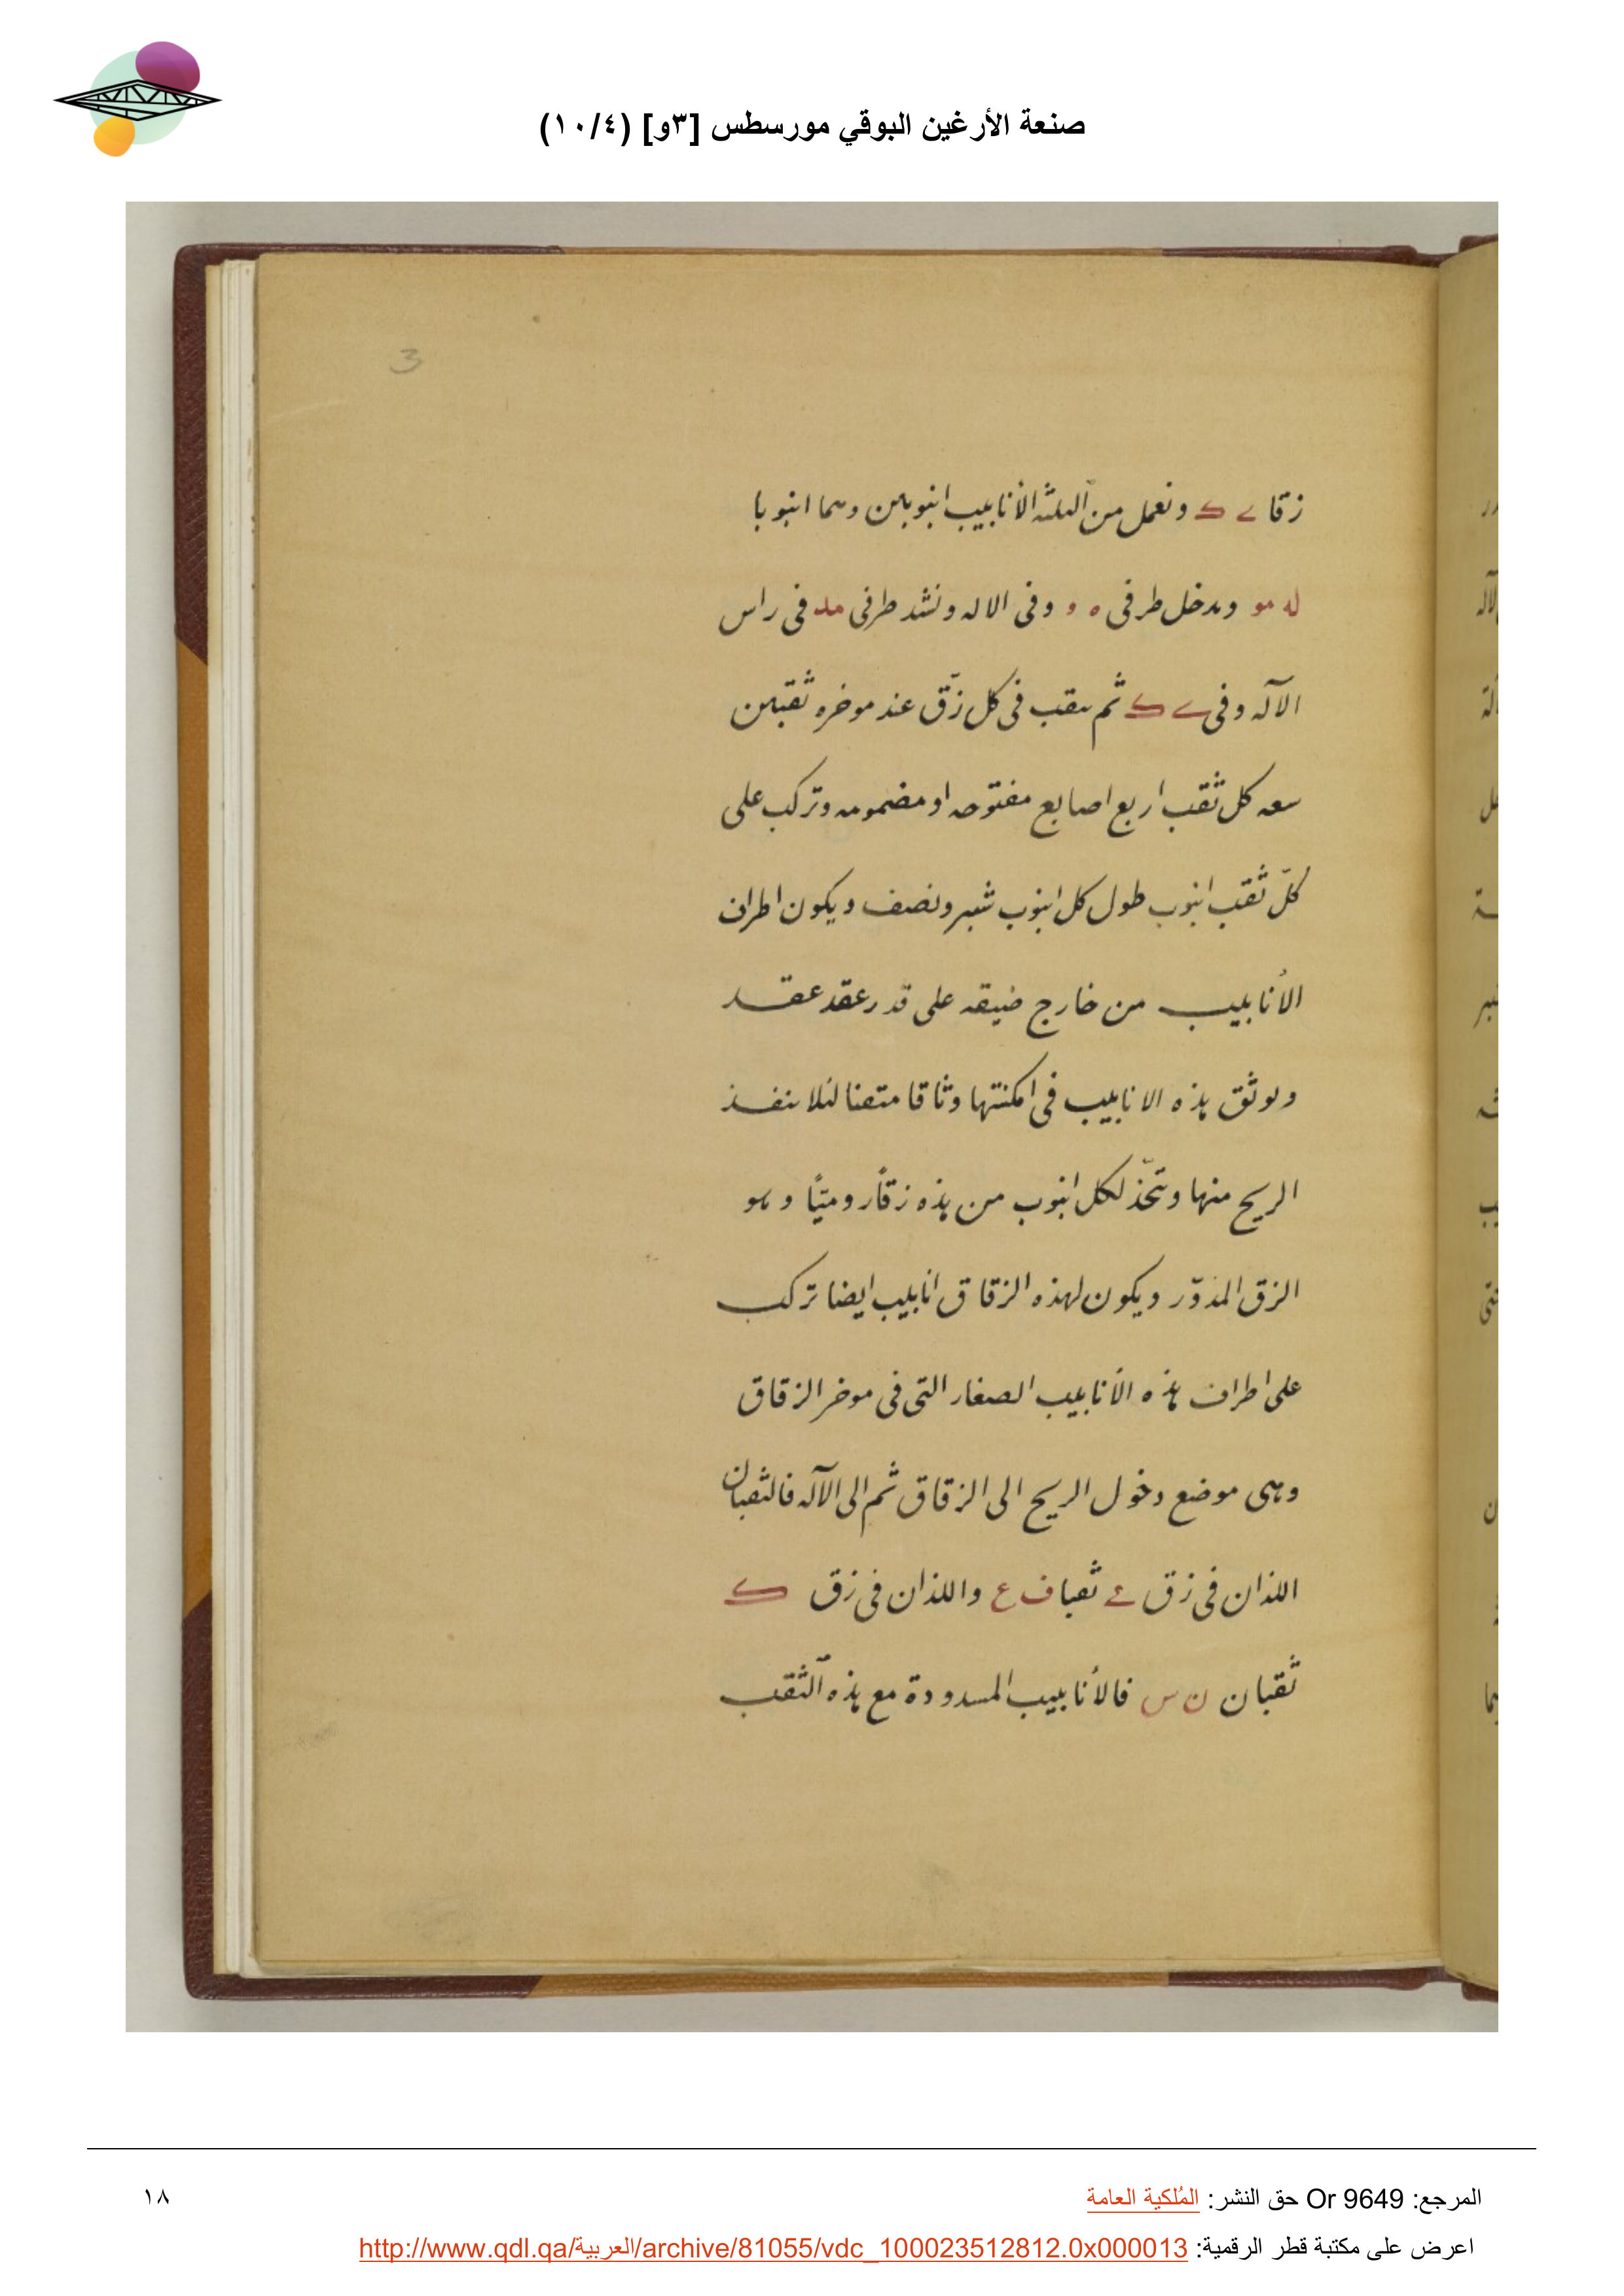 صنعة الأرغين البوقي مورسطس [٣و] (١٠/٤)
3
زقا ے ک ونعمل من الثلثه الأنابيب انبوبين وهما انبوبا
له مو وندخل طرفى ه و وفى الاله ونشد طرفى مد فى راس
الآله وفى ے ک ثم نثقب فى كل زقّ عند موخره ثقبين
سعه كل ثقب اربع اصابع مفتوحه او مضمومه وتركب على
كلّ ثقب انبوب طول كل انبوب شبر ونصف ويكون اطراف
الأنابيب من خارج ضيقه على قدر عقد عقد
ونوثق هذه الانابيب فى امكنتها وثاقا متقنا لئلا ينفذ
الريح منها وتتخّذ لكل انبوب من هذه زقاً روميّاً وهو
الزق المدوّر ويكون لهذه الزقاق انابيب ايضا تركب
على اطراف هذه الأنابيب الصغار التى فى موخر الزقاق
وهى موضع دخول الريح الى الزقاق ثم الى الآله فالثقبان
اللذان فى زق ے ثقبا ف ع واللذان فى زق ک
ثقبان ن س فالأنابيب المسدودة مع هذه الثقب
المرجع: Or 9649 حق النشر: المُلكية العامة
١٨
اعرض على مكتبة قطر الرقمية: http://www.qdl.qa/العربية/archive/81055/vdc_100023512812.0x000013